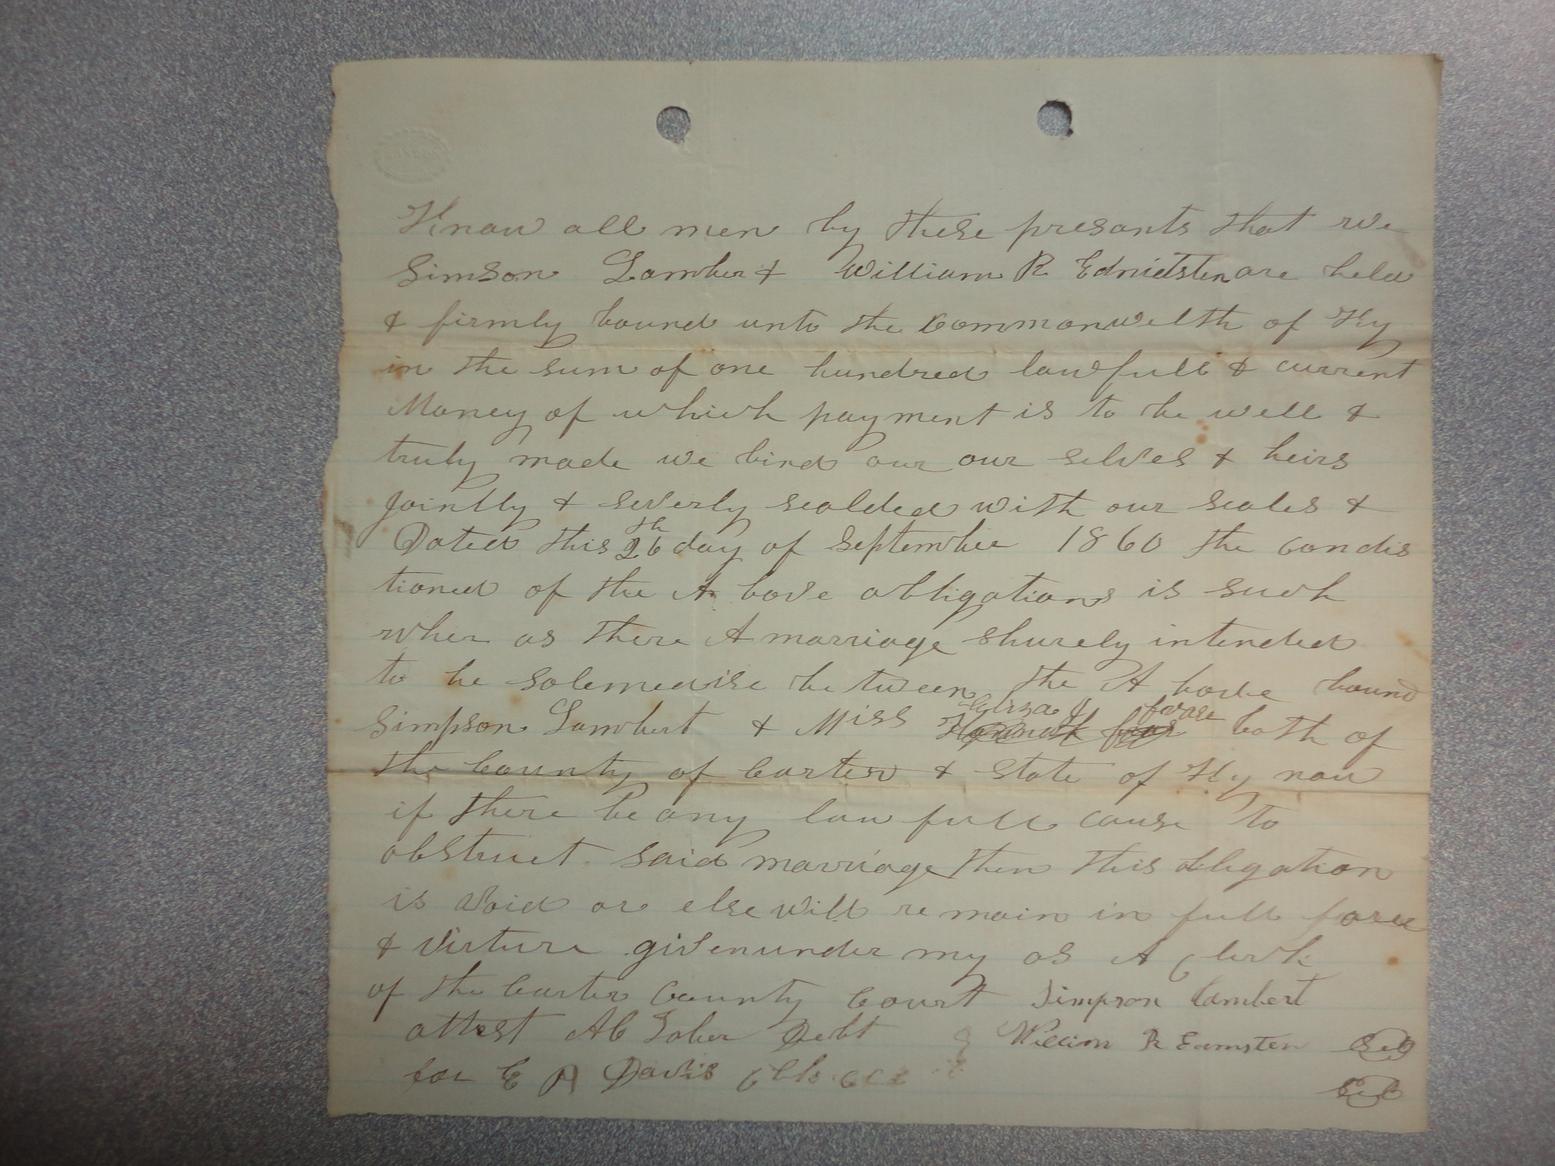 Know all men by these presants that we
Simson Lambert & William R Edmidsten are held
& firmly bound unto the Commonwelth of Ky
in the sum of one hundred lawfull & current
Money of which payment is to be well &
truly made we bind our our selves & heirs
jointly & severly sealded with our seales &
Dated this 26th day of September 1860 the condis
tioned of the A bove obligations is such
wher as there A marriage shurely intended
to be solemedise be tween the A bove bound
Simpson Lambert & Miss both of
the County of Carter & State of Ky now
if there be any law full cause to
obstruct said marriage then this obligation
is void or else will re main in full force
& virture given under my as A Clerk
of the Carter County Court Simpson Lambert
attest Debt William R Edmsten
for E Davis